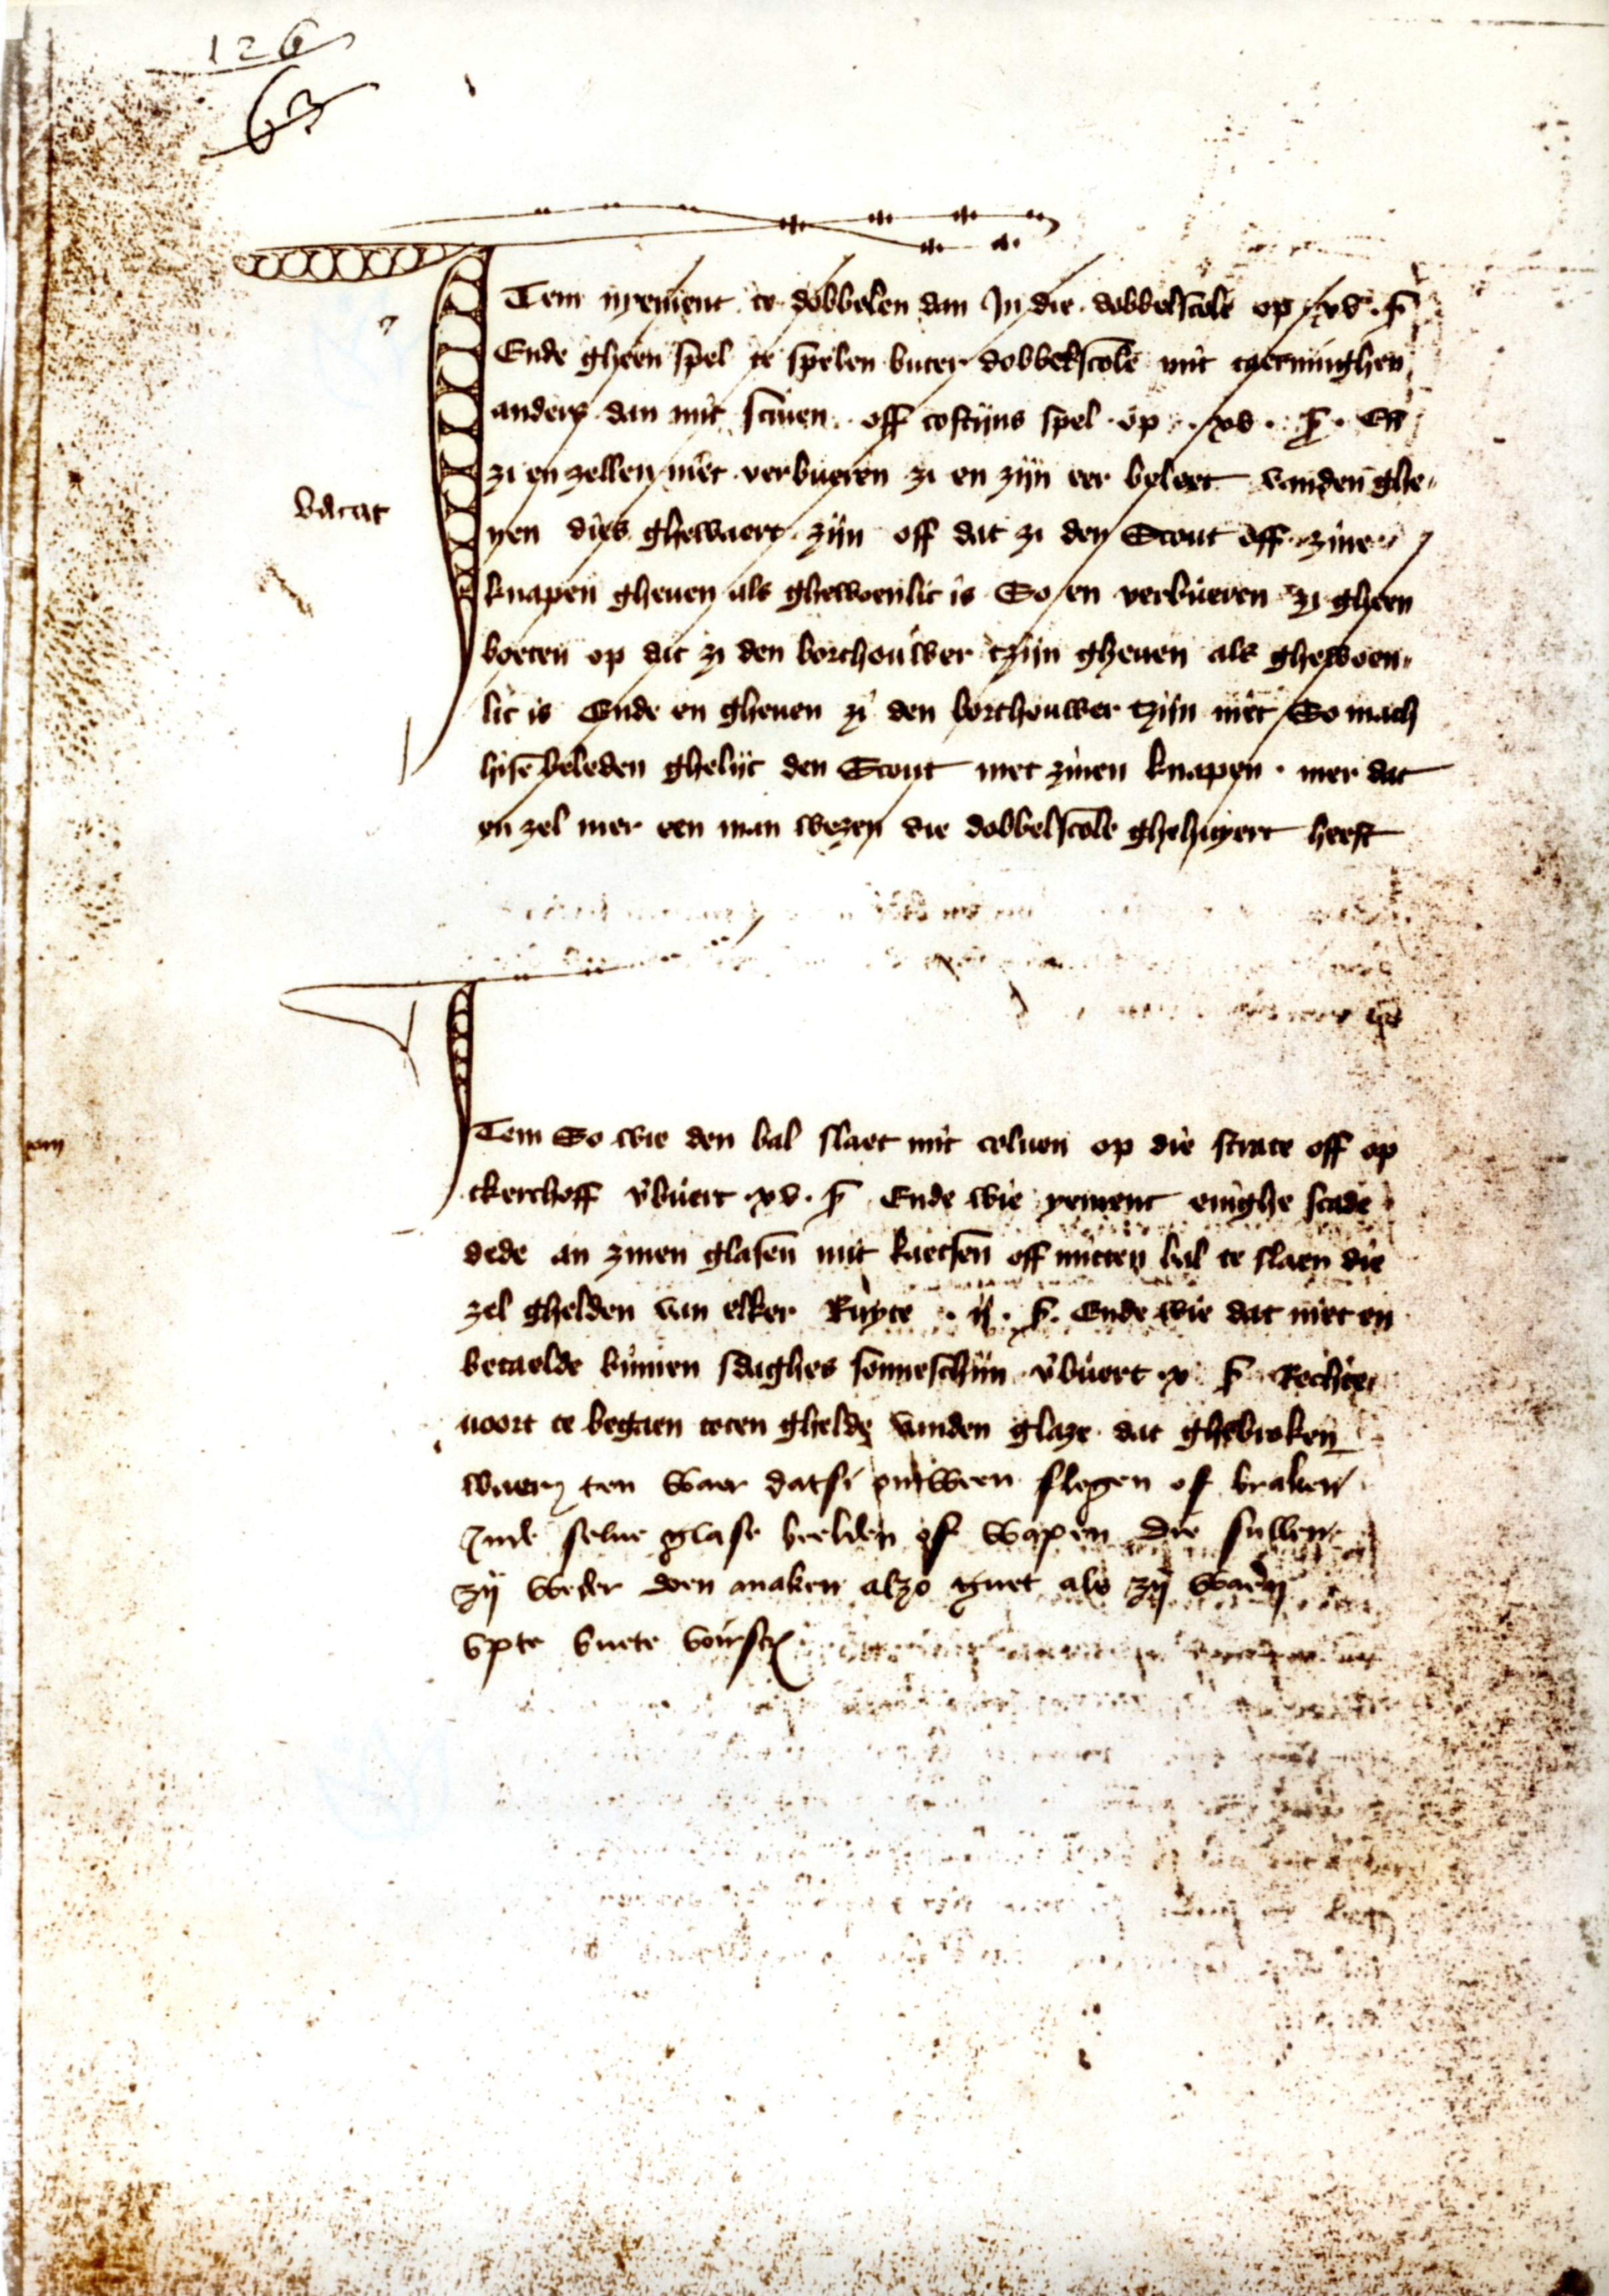 126
63
Item nyement te dobbelen dan In die dobbelscole op xv . ß
Ende gheen spel te spelen buten dobbelscole mit taerninghen
anders dan mit sciven . off costijns spel . op . xv . ß . En̄
zi en zellen niet verbueren zi en zijn eer beleet vanden ghe„
nen dies ghewaert zijn off dat zi den Scout off zine
vacat
knapen gheuen als ghewoenlic is So en verbueren zi gheen
boeten op dat zi den borchouwer tzijn gheuen als ghewoen„
lic is Ende en gheuen zi den borchouwer tzijn niet So mach
hise beleden ghelijc den Scout met zinen knapen . mer dat
en zel mer een man wezen die dobbelscole ghehuyert heeft
Item So wie den bal slaet mit coluen op die strate off op
tkerchoff v̄buert . xv . ß Ende wie yement enighe scade
dede an zinen glasen mit kaetsen off mitten bal te slaen die
zel ghelden van elker Ruyte . ij . ß . Ende wie dat niet en
betaelde binnen sdaghes sonneschijn v̄buert . x . ß Rechte„
uoort te begaen toten ghelde vanden glaze dat ghebroken
waer ten waer datsi ontween slogen of braken
Inde selue glase beelden of wapen die sullen
zij weder doen maken alzo guet als zij waren
vpte buete voirscr